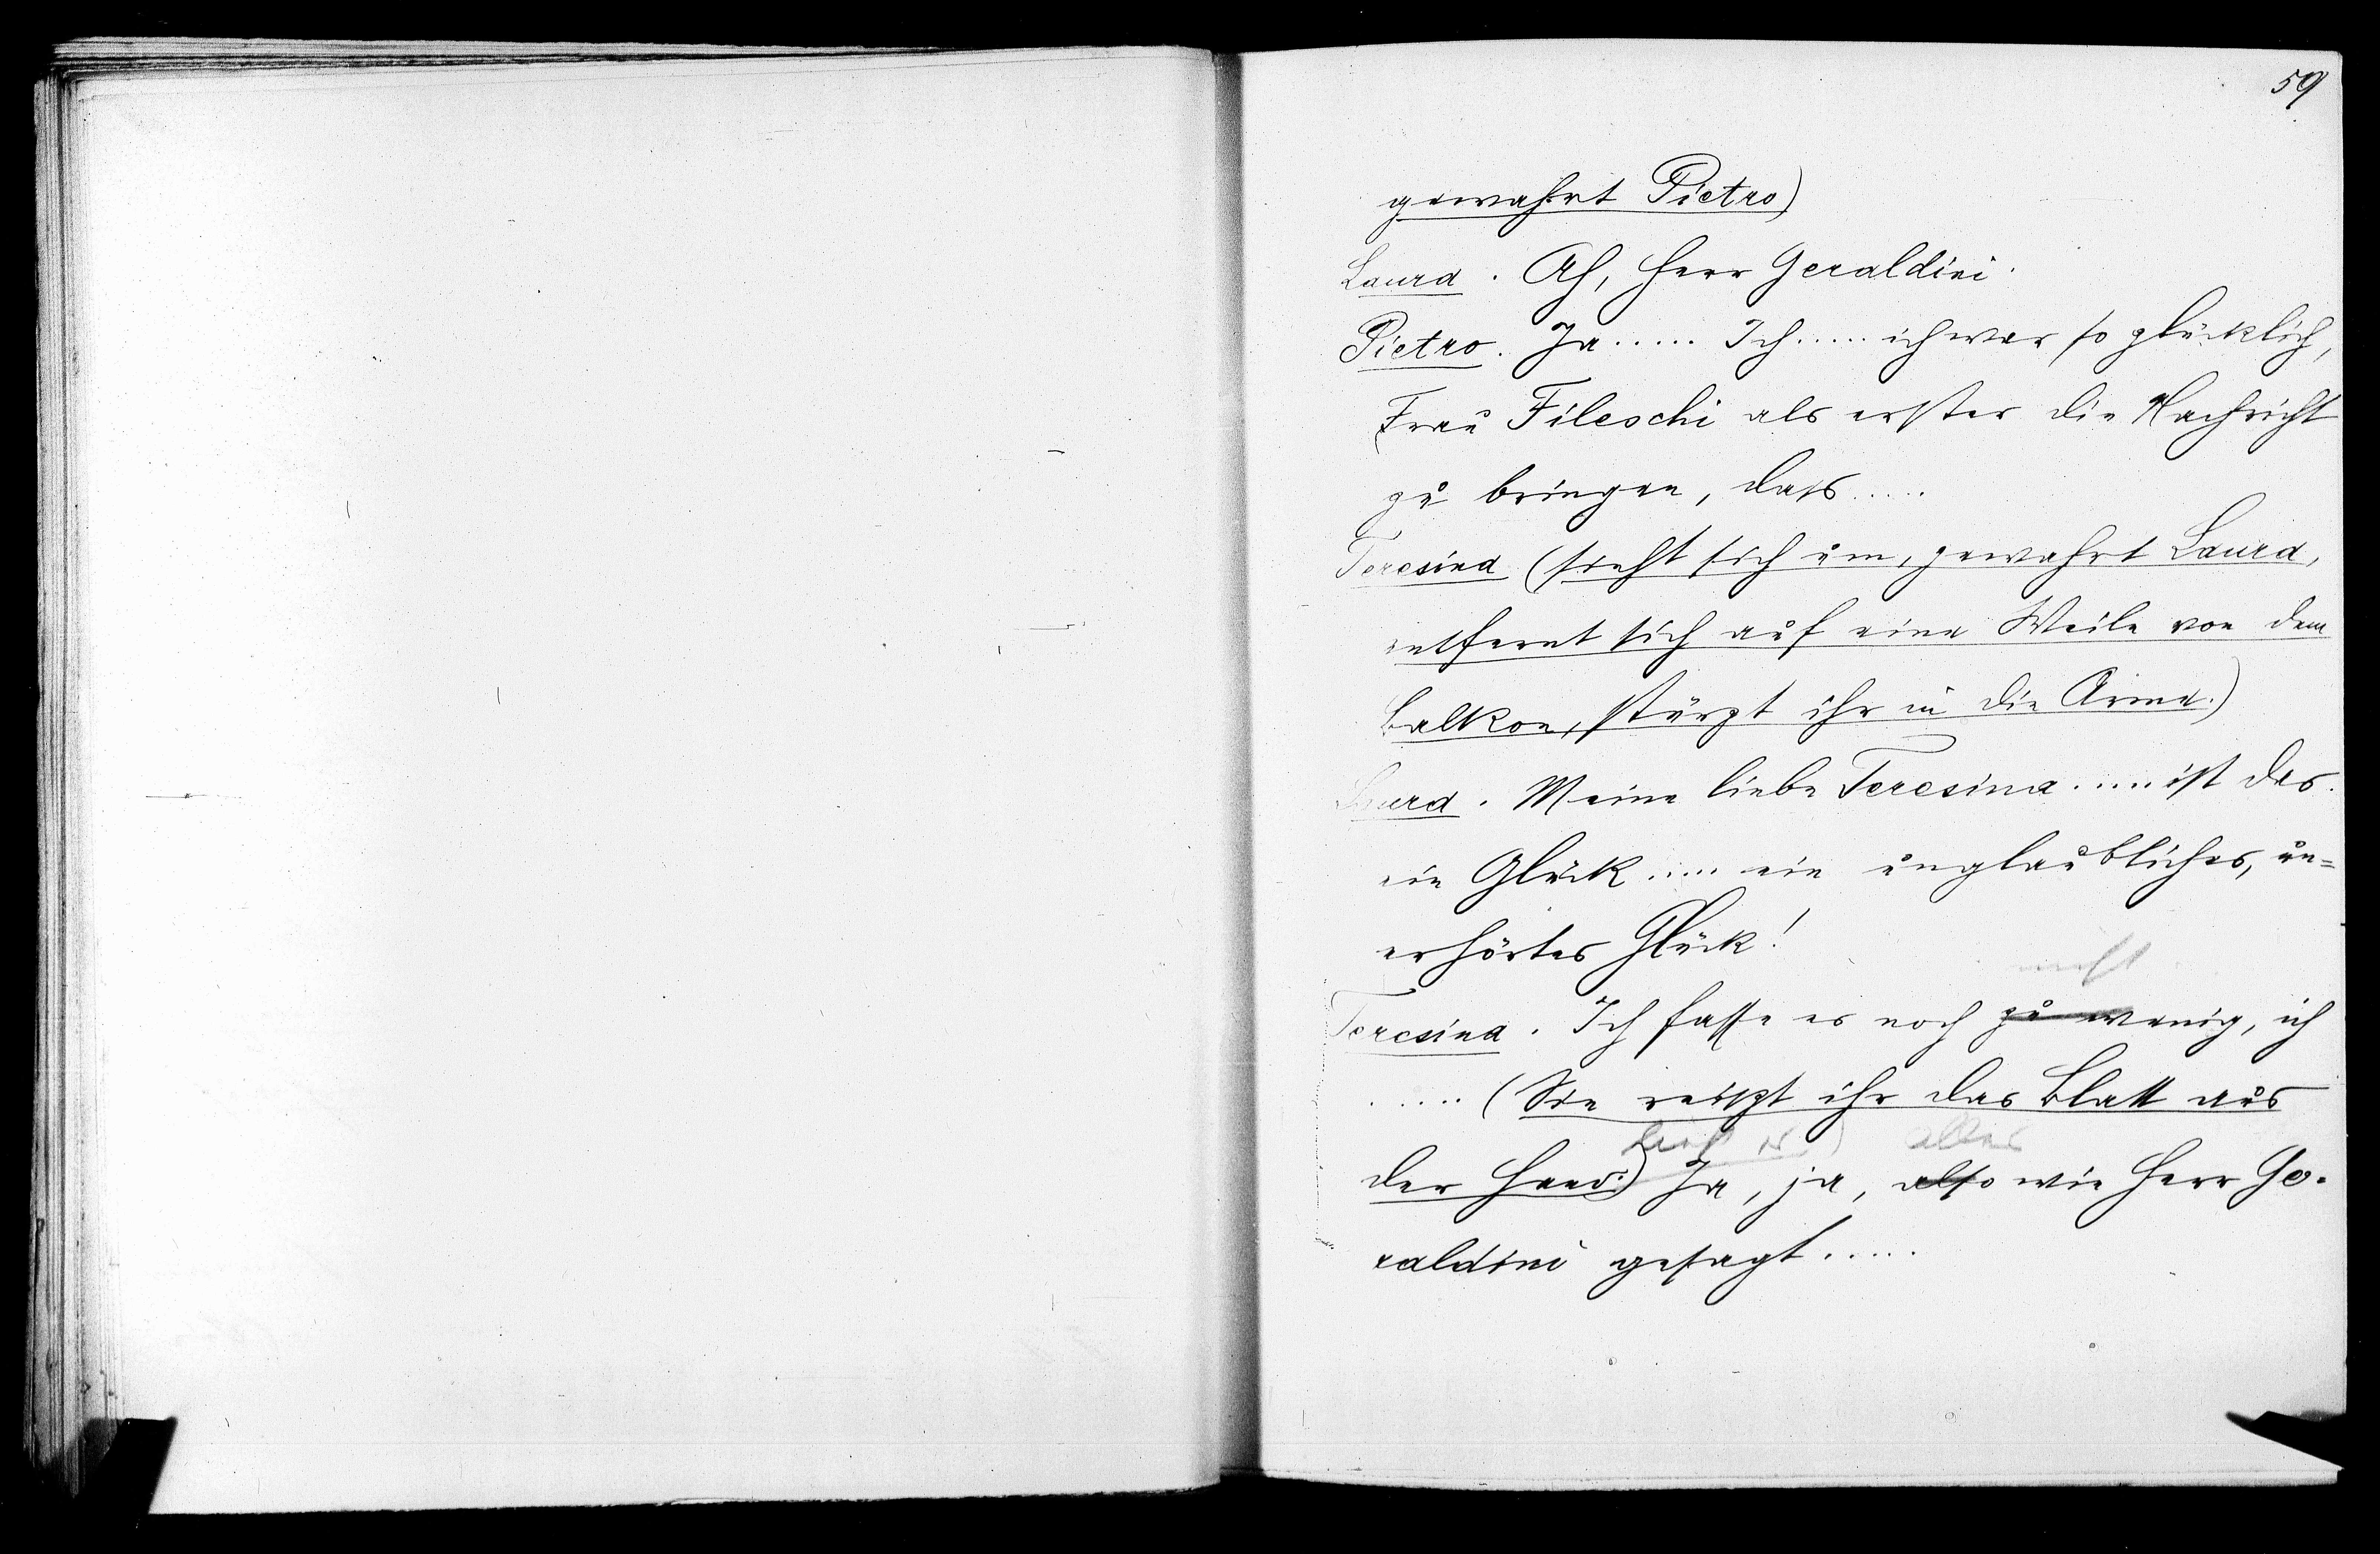 59
gewahrt Pietro)
Laura. Ah, Herr Geraldini.
Pietro. Ja..... Ich..... ich war so glücklich,
Frau Fileschi als erster die Nachricht
zu bringen, dass.....
Teresina (sieht sich um, gewahrt Laura,
entfernt sich auf eine Weile von dem
Balkon, stürzt ihr in die Arme.)
Laura. Meine liebe Teresina..... ist das
ein Glück..... ein unglaubliches, un=
erhörtes Glück!
nicht
Teresina. Ich fasse es noch zu wenig, ich
..... (Sie reißt ihr das Blatt aus
liest es) alles
der Hand.) Ja, ja, also wie Herr Ge-
raldini gesagt.....